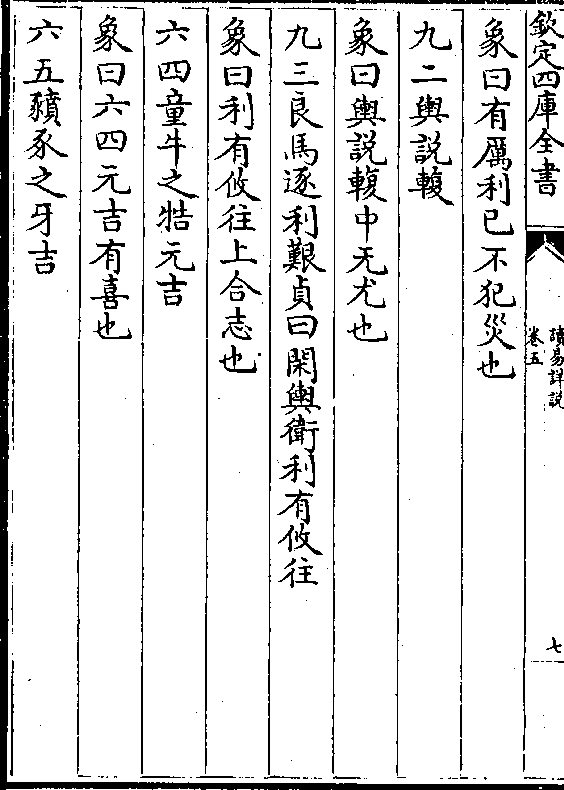 欽定四庫全書
讀易詳説
卷五
七
象曰有厲利已不犯災也
九二輿説輹
象曰輿説輹中无尤也
九三良馬逐利艱貞曰閑輿衛利有攸往
象曰利有攸往上合志也
六四童牛之牿元吉
象曰六四元吉有喜也
六五豶豕之牙吉